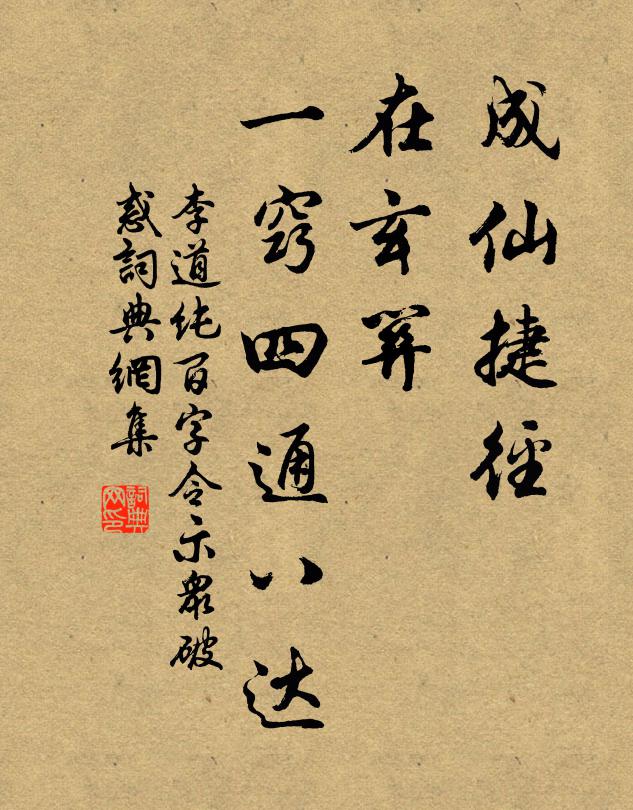 成仙捷徑
在玄关
一窍四通八达
李道纯百字令示眾破
惑詞典網集
詞典
网印